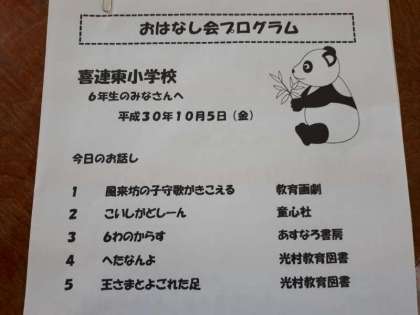 おはなし会プログラム
喜連東小学校
6年生のみなさんへ
平成30年10月5日(金)
今日のお話し
1 風来坊の子守歌がきこえる 教育画劇
2 こいしがどしーん 童心社
3 6わのからす あすなろ書房
4 へたなんよ 光村教育図書
5 王さまとよごれた足 光村教育図書